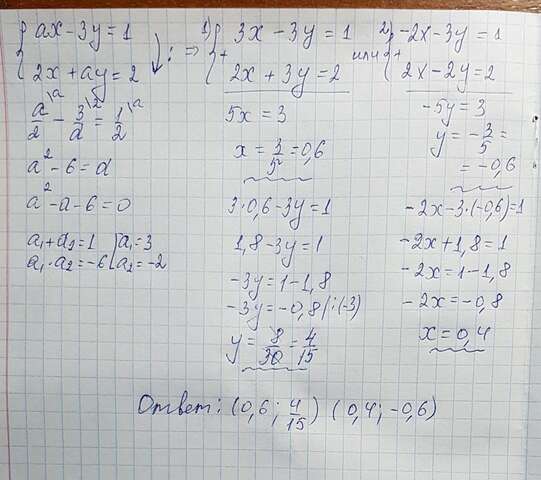 { ax - 3y = 1
2x + ay = 2 ) : ⇒
a/2 \a - 3/a \2 = 1/2 \a
a² - 6 = a
a² - a - 6 = 0
a₁ + a₂ = 1 } a₁ = 3
a₁ · a₂ = -6 { a₂ = -2
1) { 3x - 3y = 1
+ 2x + 3y = 2
5x = 3
x = 3/5 = 0,6
3·0,6 - 3y = 1
1,8 - 3y = 1
-3y = 1 - 1,8
-3y = -0,8 | : (-3)
y = 8/30 = 4/15
или
2) { -2x - 3y = 1
+ 2x - 2y = 2
-5y = 3
y = -3/5 =
= -0,6
-2x - 3·(-0,6) = 1
-2x + 1,8 = 1
-2x = 1 - 1,8
-2x = -0,8
x = 0,4
Ответ: (0,6; 4/15) (0,4; -0,6)